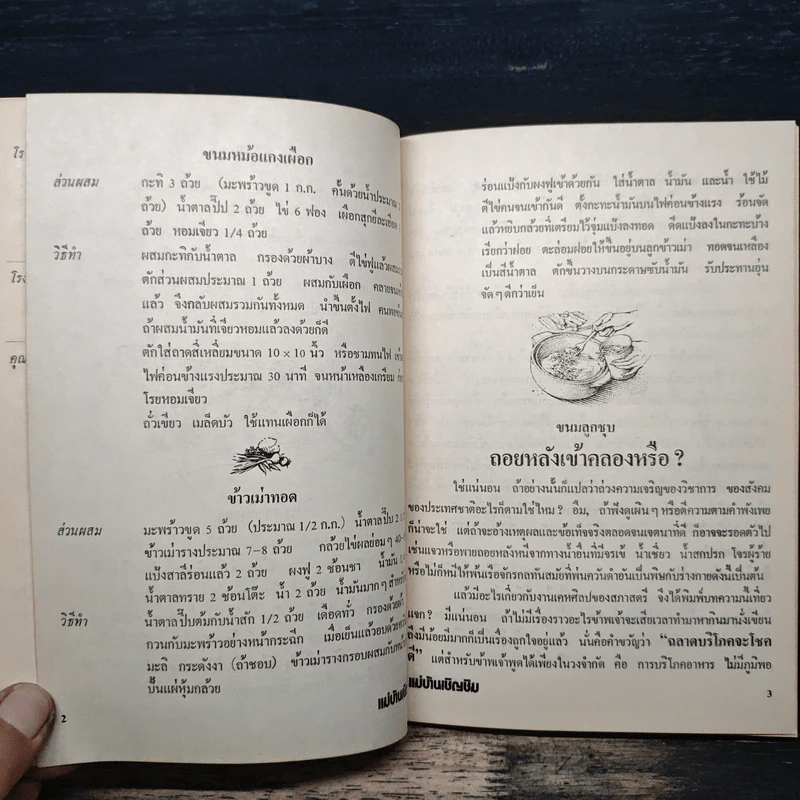 โร
โรง
คุณ
ขนมหม้อแกงเผือก
ส่วนผสม
กะทิ 3 ถ้วย (มะพร้าวขูด 1 ก.ก. คั้นด้วยน้ำประมาณ 3
ถ้วย) น้ำตาลปี๊ป 2 ถ้วย ไข่ 6 ฟอง เผือกสุกยีละเอียด
ถ้วย หอมเจียว 1/4 ถ้วย
วิธีทำ
ผสมกะทิกับน้ำตาล กรองด้วยผ้าบาง ตีไข่ฟูแล้วผสม
ตักส่วนผสมประมาณ 1 ถ้วย ผสมกับเผือก คลายจน
แล้ว จึงกลับผสมรวมกันทั้งหมด นำขึ้นตั้งไฟ คนพอ
ถ้าผสมน้ำมันที่เจียวหอมแล้วลงด้วยก็ดี
ตักใส่ถาดสี่เหลี่ยมขนาด 10 × 10 นิ้ว หรือชามทนไฟ
ไฟค่อนข้างแรงประมาณ 30 นาที จนหน้าเหลืองเกรียม
โรยหอมเจียว
ถั่วเขียว เมล็ดบัว ใช้แทนเผือกก็ได้
ข้าวเม่าทอด
ส่วนผสม
มะพร้าวขูด 5 ถ้วย (ประมาณ 1/2 ก.ก.) น้ำตาลปี๊ป 2
ข้าวเม่ารางประมาณ 7–8 ถ้วย กล้วยไข่ผลย่อมๆ 40
แป้งสาลีร่อนแล้ว 2 ถ้วย ผงฟู 2 ช้อนชา น้ำมัน
น้ำตาลทราย 2 ช้อนโต๊ะ น้ำ 2 ถ้วย น้ำมันมากๆ สำหรับ
วิธีทำ
น้ำตาลปี๊บต้มกับน้ำสัก 1/2 ถ้วย เดือดทั่ว กรองด้วย
กวนกับมะพร้าวอย่างหน้ากระฉีก เมื่อเย็นแล้วอบด้วย
มะลิ กระดังงา (ถ้าชอบ) ข้าวเม่ารางกรอบผสมกับ
ปั้นแผ่หุ้มกล้วย
2
แม่บ้านเชิ
ร่อนแป้งกับผงฟูเข้าด้วยกัน ใส่น้ำตาล น้ำมัน และน้ำ ใช้ไม้
ตีไข่คนจนเข้ากันดี ตั้งกะทะน้ำมันบนไฟค่อนข้างแรง ร้อนจัด
แล้วหยิบกล้วยที่เตรียมไว้จุ่มแป้งลงทอด ดีดแป้งลงในกะทะบ้าง
เรียกว่าฝอย ตะล่อมฝอยให้ขึ้นอยู่บนลูกข้าวเม่า ทอดจนเหลือง
เป็นสีน้ำตาล ตักขึ้นวางบนกระดาษซับน้ำมัน รับประทานอุ่น
จัดๆ ดีกว่าเย็น
ขนมลูกชุบ
ถอยหลังเข้าคลองหรือ ?
ใช่แน่นอน ถ้าอย่างนั้นก็แปลว่าถ่วงความเจริญของวิชาการ ของสังคม
ของประเทศชาติอะไรก็ตามใช่ไหม ? อืม, ถ้าฟังดูเผินๆ หรือตีความตามคำพังเพย
ก็น่าจะใช่ แต่ถ้าจะอ้างเหตุผลและข้อเท็จจริงตลอดจนเจตนาที่ดี ก็อาจจะรอดตัวไป
เช่นแจวหรือพายถอยหลังหนีจากทางน้ำอื่นที่มีจรเข้ น้ำเชี่ยว น้ำสกปรก โจรผู้ร้าย
หรือไม่ก็หนีให้พ้นเรือจักรกลทันสมัยที่พ่นควันดำอันเป็นพิษกับร่างกายดังนี้เป็นต้น
แล้วมีอะไรเกี่ยวกับงานเคหศิลปของสภาสตรี จึงได้พิมพ์บทความนี้เที่ยว
แจก ? มีแน่นอน ถ้าไม่มีเรื่องราวอะไรข้าพเจ้าจะเสียเวลาทำมาหากินมานั่งเขียน
ถึงมีน้อยมีมากก็เป็นเรื่องถูกใจอยู่แล้ว นั่นคือคำขวัญว่า "ฉลาดบริโภคจะโชค
ดี" แต่สำหรับข้าพเจ้าพูดได้เพียงในวงจำกัด คือ การบริโภคอาหาร ไม่มีภูมิพอ
แม่บ้านเชิญชิม
3